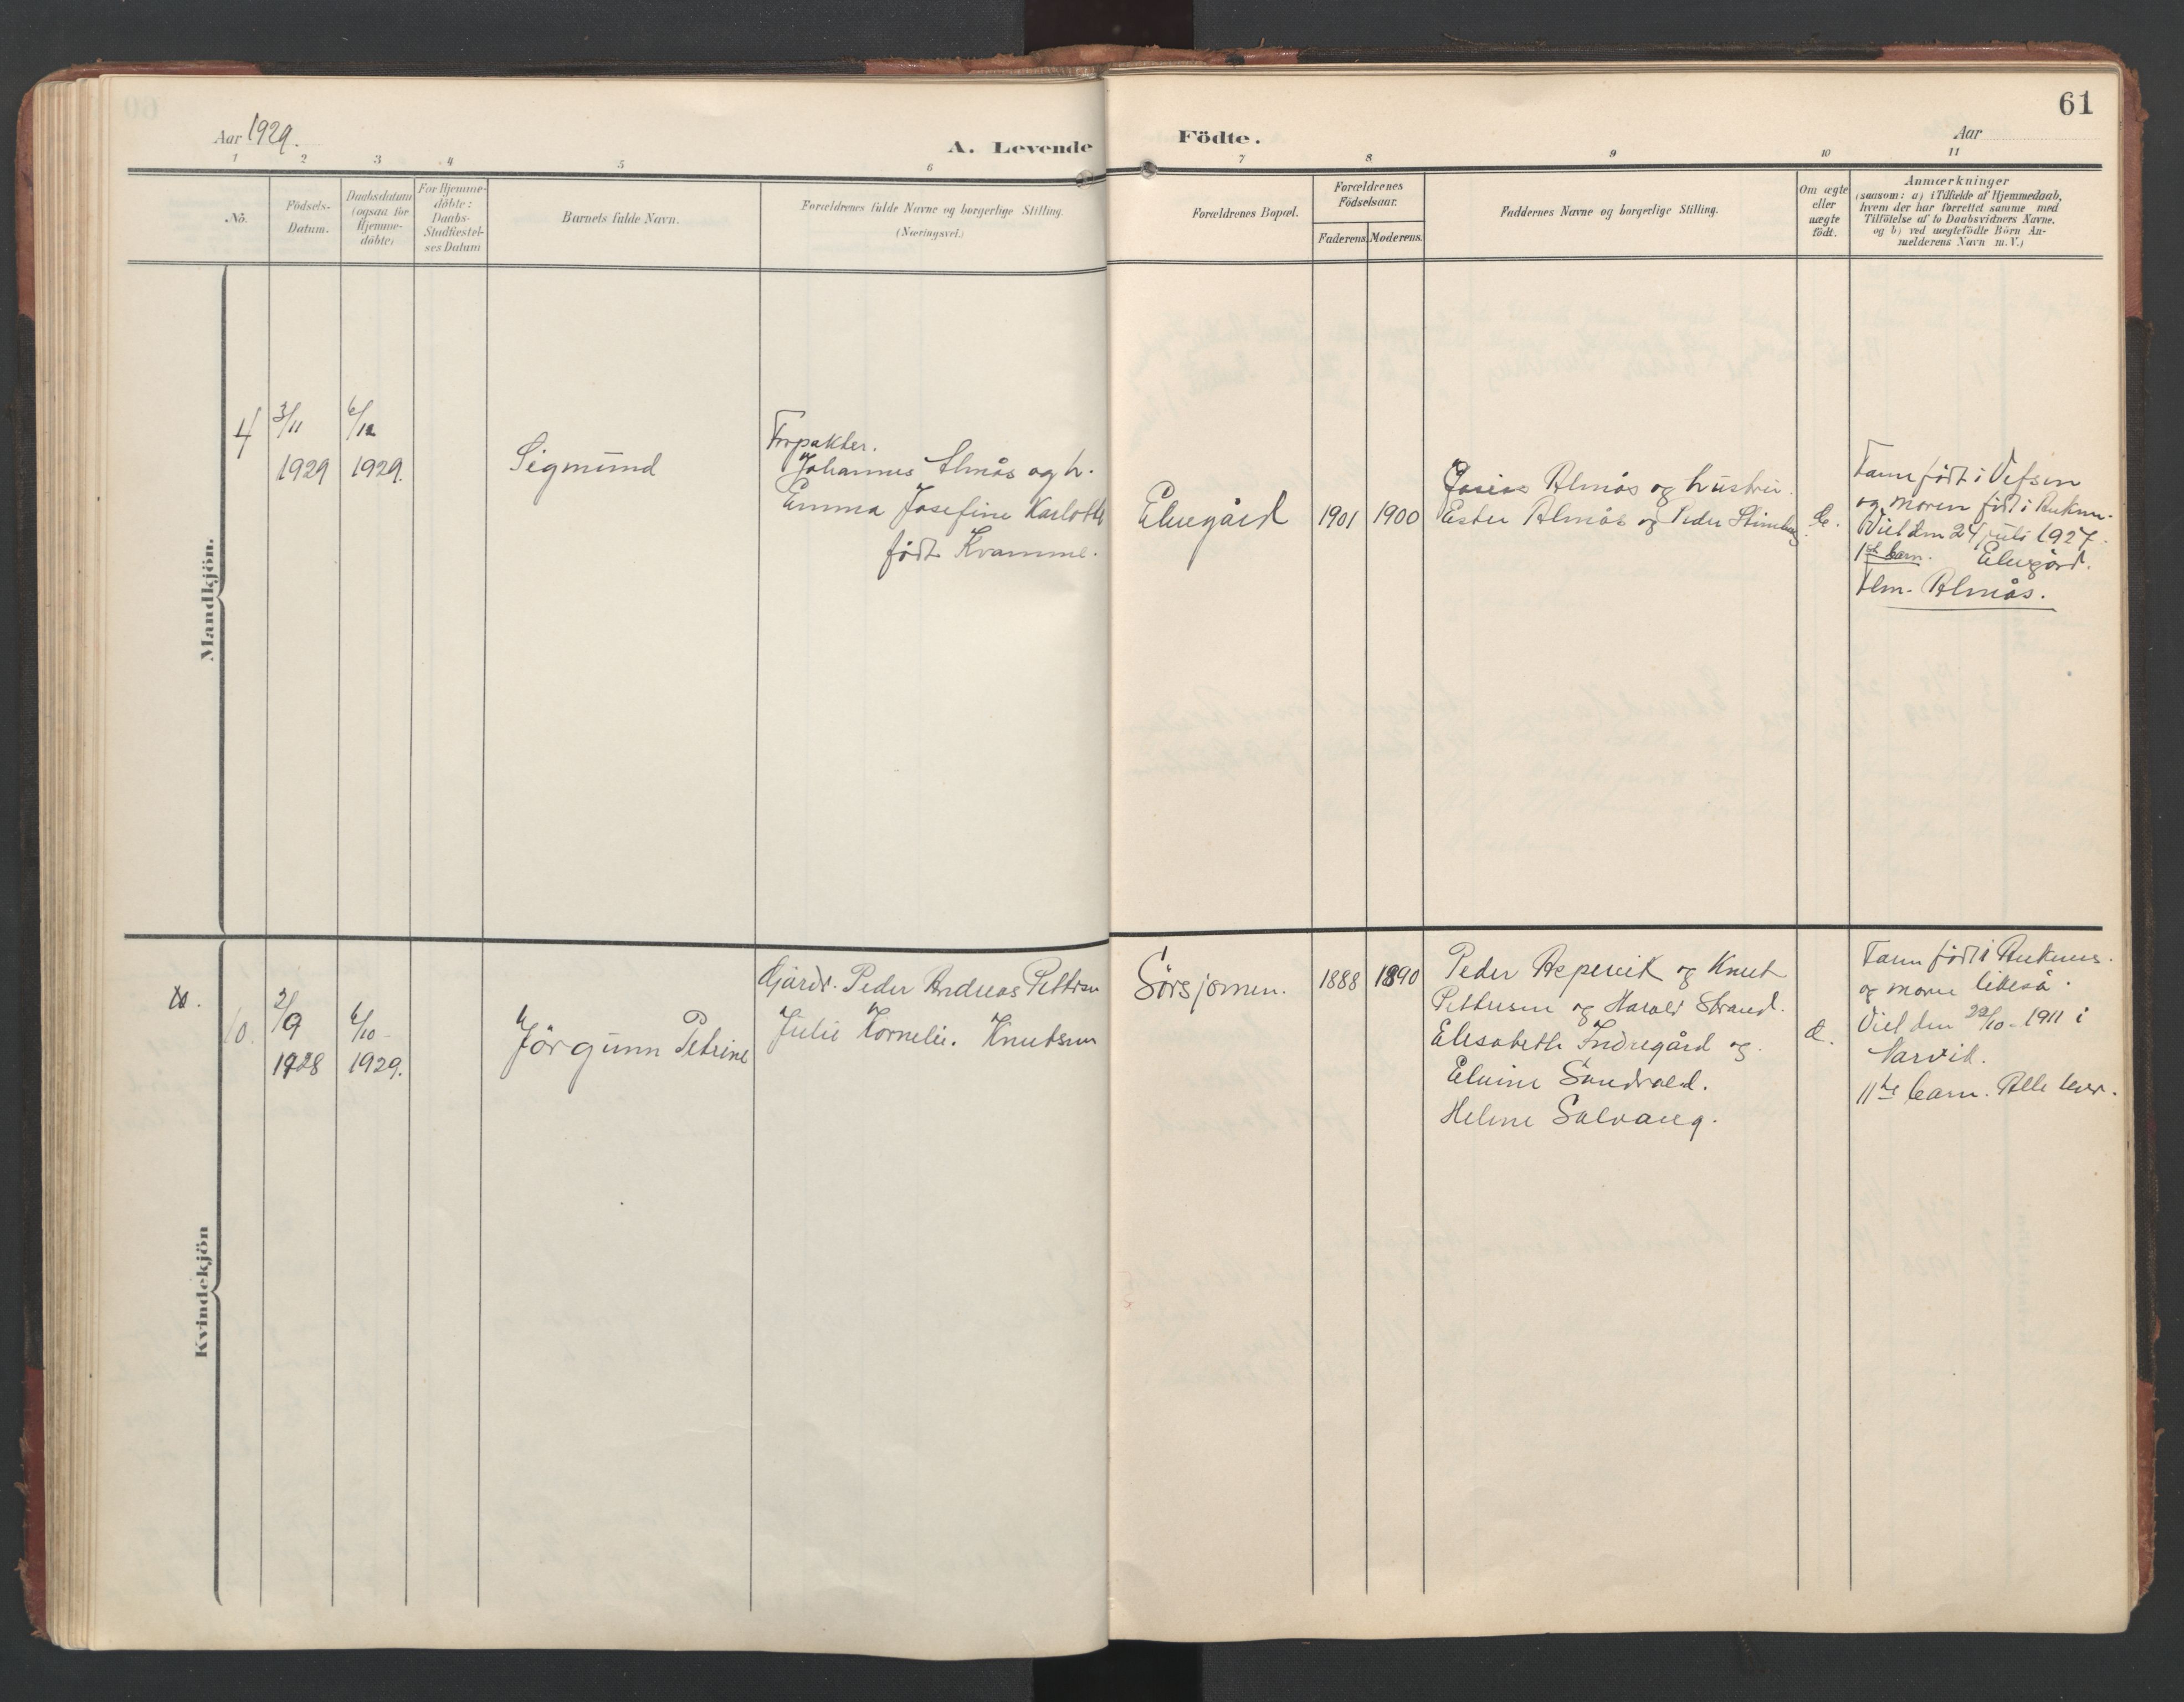 61
Aar 1929.
A. Levende
Födte.
Aar
1
2
3
4
5
6
7
8
9
10
11
Nö.
Födsels-
Datum.
Daabsdatum
(ogsaa for
Hjemme-
döbte)
For Hjemme-
döbte:
Daabs-
Stadfæstel-
ses Datum
Barnets fulde Navn.
Forældrenes fulde Navne og borgerlige Stilling.
(Næringsvei.)
Forældrenes Bopæl.
Forældrenes
Födselsaar.
Faderens.
Moderens.
Faddernes Navne og borgerlige Stilling.
Om ægte
eller
uægte
födt.
Anmærkninger
(saasom: a) i Tilfælde af Hjemmedaab,
hvem der har forrettet samme med
Tilföielse af to Daabsvidners Navne.
og b) ved uægtefödte Börn An-
melderens Navn m. V.)
Mandkjön.
4
3/11
1929
6/12
1929.
Sigmund
Forpakter.
Johannes Almås og h.
Emma Josefine Karlotte
født Kvamme.
Elvegård
1901
1900
Almås og hustru.
Ester Almås og Peder
Faren født i Vefsn
og moren født i Ankenes.
Viet den 24 juli 1927.
1st barn. Elvegård.
Almås.
Kvindekjön
10.
2/9
1928
6/10
1929.
Jörgunn Petrine
Gjardr. Peder Andreas Pettersen
Julie Kornelie. Knutsen
Sörsjomen.
1888
1890
Peder Aspevik og Knut
Pettersen og Harald Strand.
Elisabeth Indregård og
Elvine Sandvold.
Helene Solvang.
Faren født i Ankenes.
og moren likeså.
Viet den 22/10 - 1911 i
Narvik.
11te barn. Alle lever.